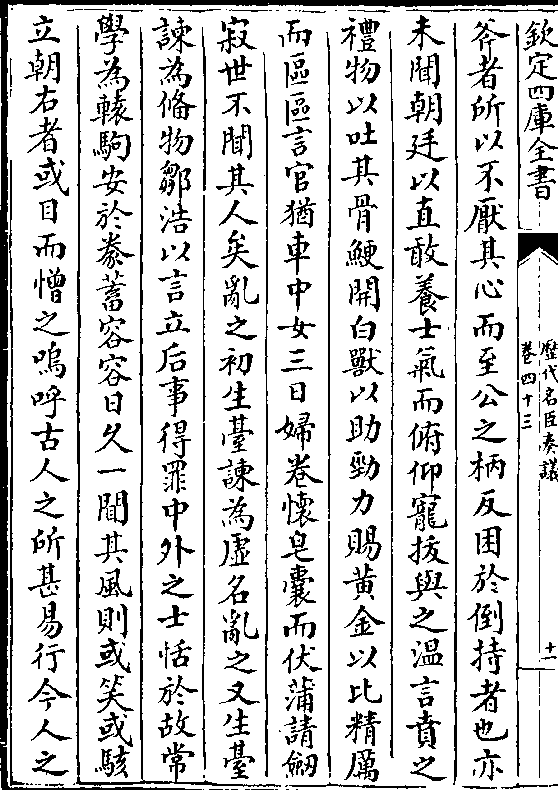 欽定四庫全書
歷代名臣奏議
卷四十三
十一
斧者所以不厭其心而至公之柄反困於倒持者也亦
未聞朝廷以直敢養士氣而俯仰寵拔與之温言賁之
禮物以吐其骨鯁開白獸以助勁力賜黃金以比精厲
而區區言官猶車中女三日婦卷懷皂囊而伏蒲請劒
寂世不聞其人矣亂之初生臺諫為虛名亂之又生臺
諫為備物鄒浩以言立后事得罪中外之士恬於故常
學為轅駒安於豢蓄容容日久一聞其風則或笑或駭
立朝右者或目而憎之嗚呼古人之所甚易行今人之